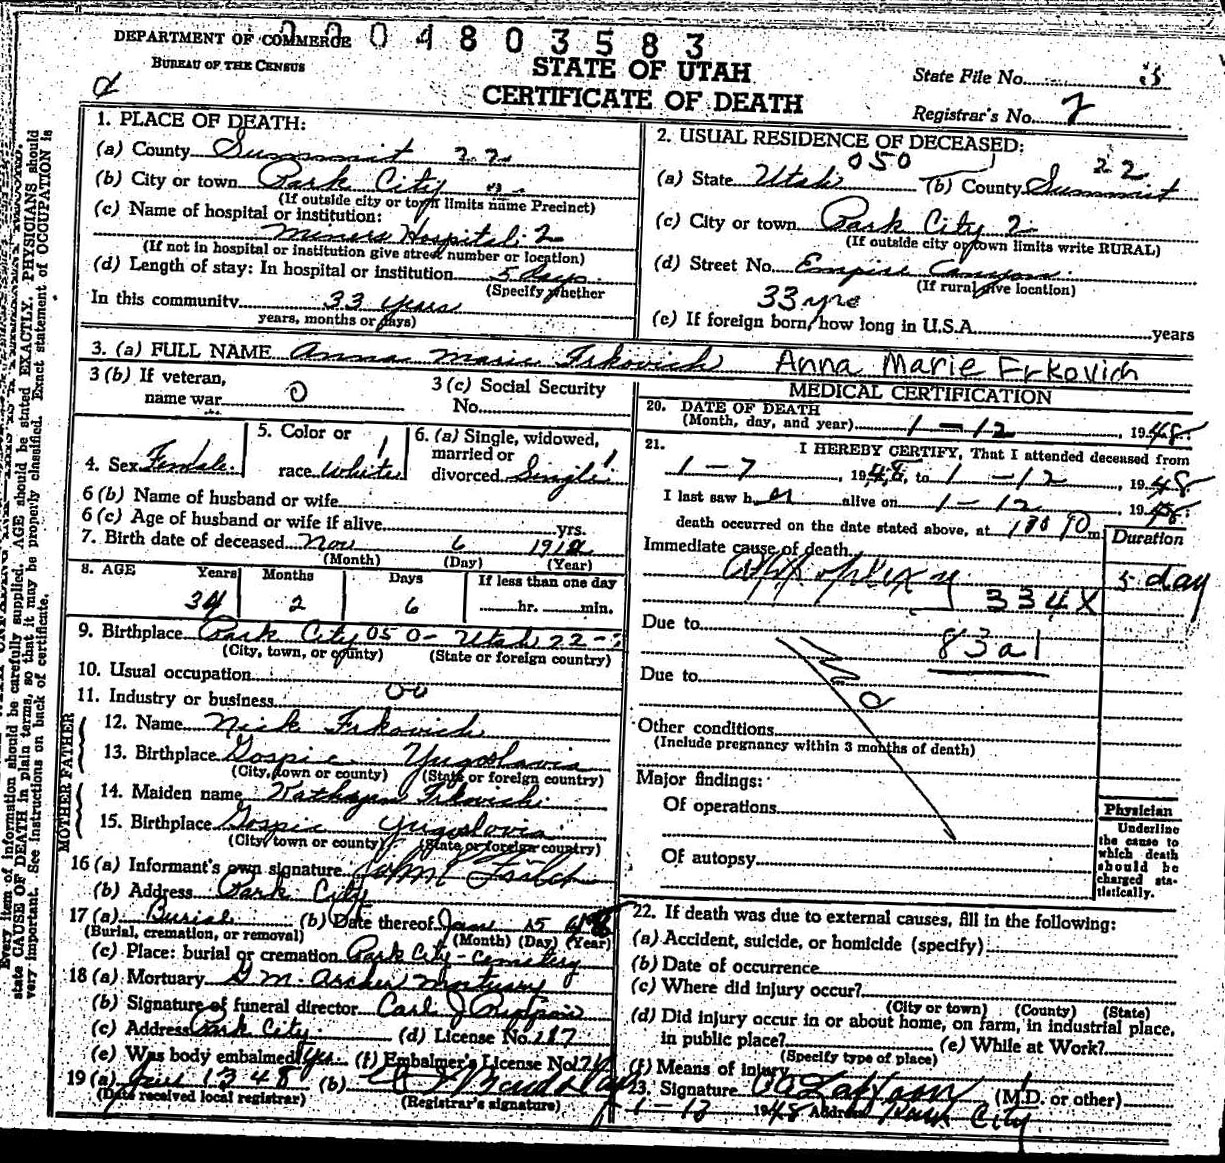 2204803583
DEPARTMENT OF COMMERCE
BUREAU OF THE CENSUS
STATE OF UTAH
CERTIFICATE OF DEATH
State File No.
Registrar's No. 2
1. PLACE OF DEATH:
(a) County Summit 22
(b) City or town Park City
(If outside city or town limits name Precinct)
(c) Name of hospital or institution:
Miners Hospital 2
(If not in hospital or institution give street number or location)
(d) Length of stay: In hospital or institution 5 days
(Specify whether
In this community 33 years
years, months or days)
2. USUAL RESIDENCE OF DECEASED:
(a) State Utah 050 (b) County Summit 22
(c) City or town Park City 2
(If outside city or town limits write RURAL)
(d) Street No. Empire Canyon
(If rural give location)
33 yrs
(e) If foreign born, how long in U.S.A. years
3. (a) FULL NAME Anna Marie Frkovich Anna Marie Frkovich
3 (b) If veteran, name war 0
3 (c) Social Security No.
4. Sex Female
5. Color or race White 1
6. (a) Single, widowed, married or divorced Single 1
6 (b) Name of husband or wife
6 (c) Age of husband or wife if alive yrs.
7. Birth date of deceased Nov 6
(Month) (Day) (Year)
8. AGE Years Months Days If less than one day
34 2 6 hr. min.
9. Birthplace Park City 050- Utah 22-
(City, town, or county) (State or foreign country)
10. Usual occupation
11. Industry or business 00
FATHER
12. Name Nick Frkovich
13. Birthplace Gospic Yugoslavia
(City, town or county) (State or foreign country)
MOTHER
14. Maiden name
15. Birthplace Gospic Yugoslovia
(City, town or county) (State or foreign country)
16 (a) Informant's own signature John
(b) Address Park City
17 (a) Burial (b) Date thereof Jan 15
(Burial, cremation, or removal) (Month) (Day) (Year)
(c) Place: burial or cremation Park City - Cemetery
18 (a) Mortuary G M. Archer Mortuary
(b) Signature of funeral director Carl J
(c) Address Park City (d) License No. 117
(e) Was body embalmed Yes (f) Embalmer's License No.
19 (a) Jan 13 48 (b)
(Date received local registrar) (Registrar's signature)
MEDICAL CERTIFICATION
20. DATE OF DEATH
(Month, day, and year) 1-12, 1948.
21. I HEREBY CERTIFY, That I attended deceased from
1-7, 1948, to 1-12, 1948
I last saw h er alive on 1-12, 1948.
death occurred on the date stated above, at m.
Duration
Immediate cause of death
Apoplexy 5 day
334X
Due to
83a1
Due to
No
Other conditions
(Include pregnancy within 3 months of death)
Major findings:
Of operations
Of autopsy
Physician
Underline the cause to which death should be charged statistically.
22. If death was due to external causes, fill in the following:
(a) Accident, suicide, or homicide (specify)
(b) Date of occurrence
(c) Where did injury occur?
(City or town) (County) (State)
(d) Did injury occur in or about home, on farm, in industrial place, in public place? (e) While at Work?
(Specify type of place)
(f) Means of injury
23. Signature (M.D. or other)
1-13 1948 Address Park City
Every item of information should be carefully supplied. AGE should be stated EXACTLY. PHYSICIANS should
state CAUSE OF DEATH in plain terms, so that it may be properly classified. Exact statement of OCCUPATION is
very important. See instructions on back of certificate.